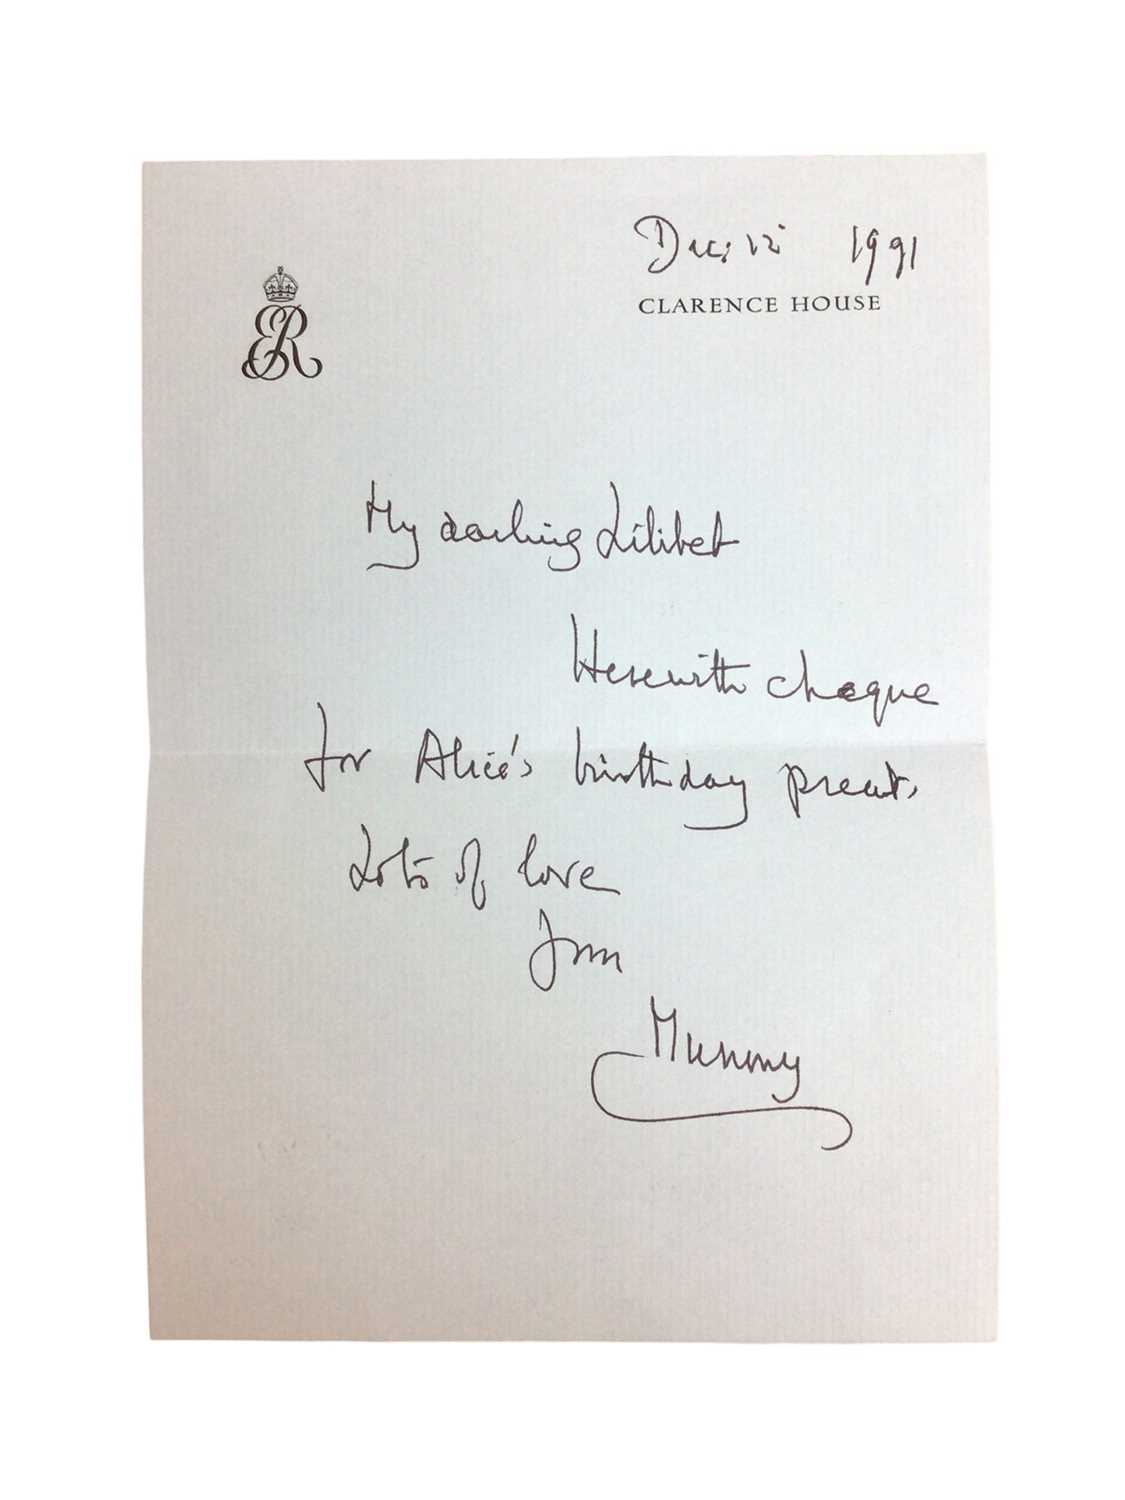 Dec: 12th 1991
CLARENCE HOUSE
ER
My darling Lilibet
Herewith cheque
for Alice's birthday present.
Lots of love
from
Mummy